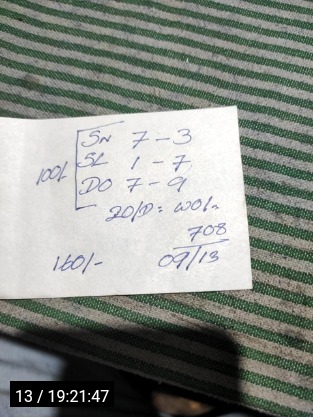 SN 7-3
100/- SL 1-7
DO 7-9
20/D = WO/-
708
160/- 09/13
13 / 19:21:47